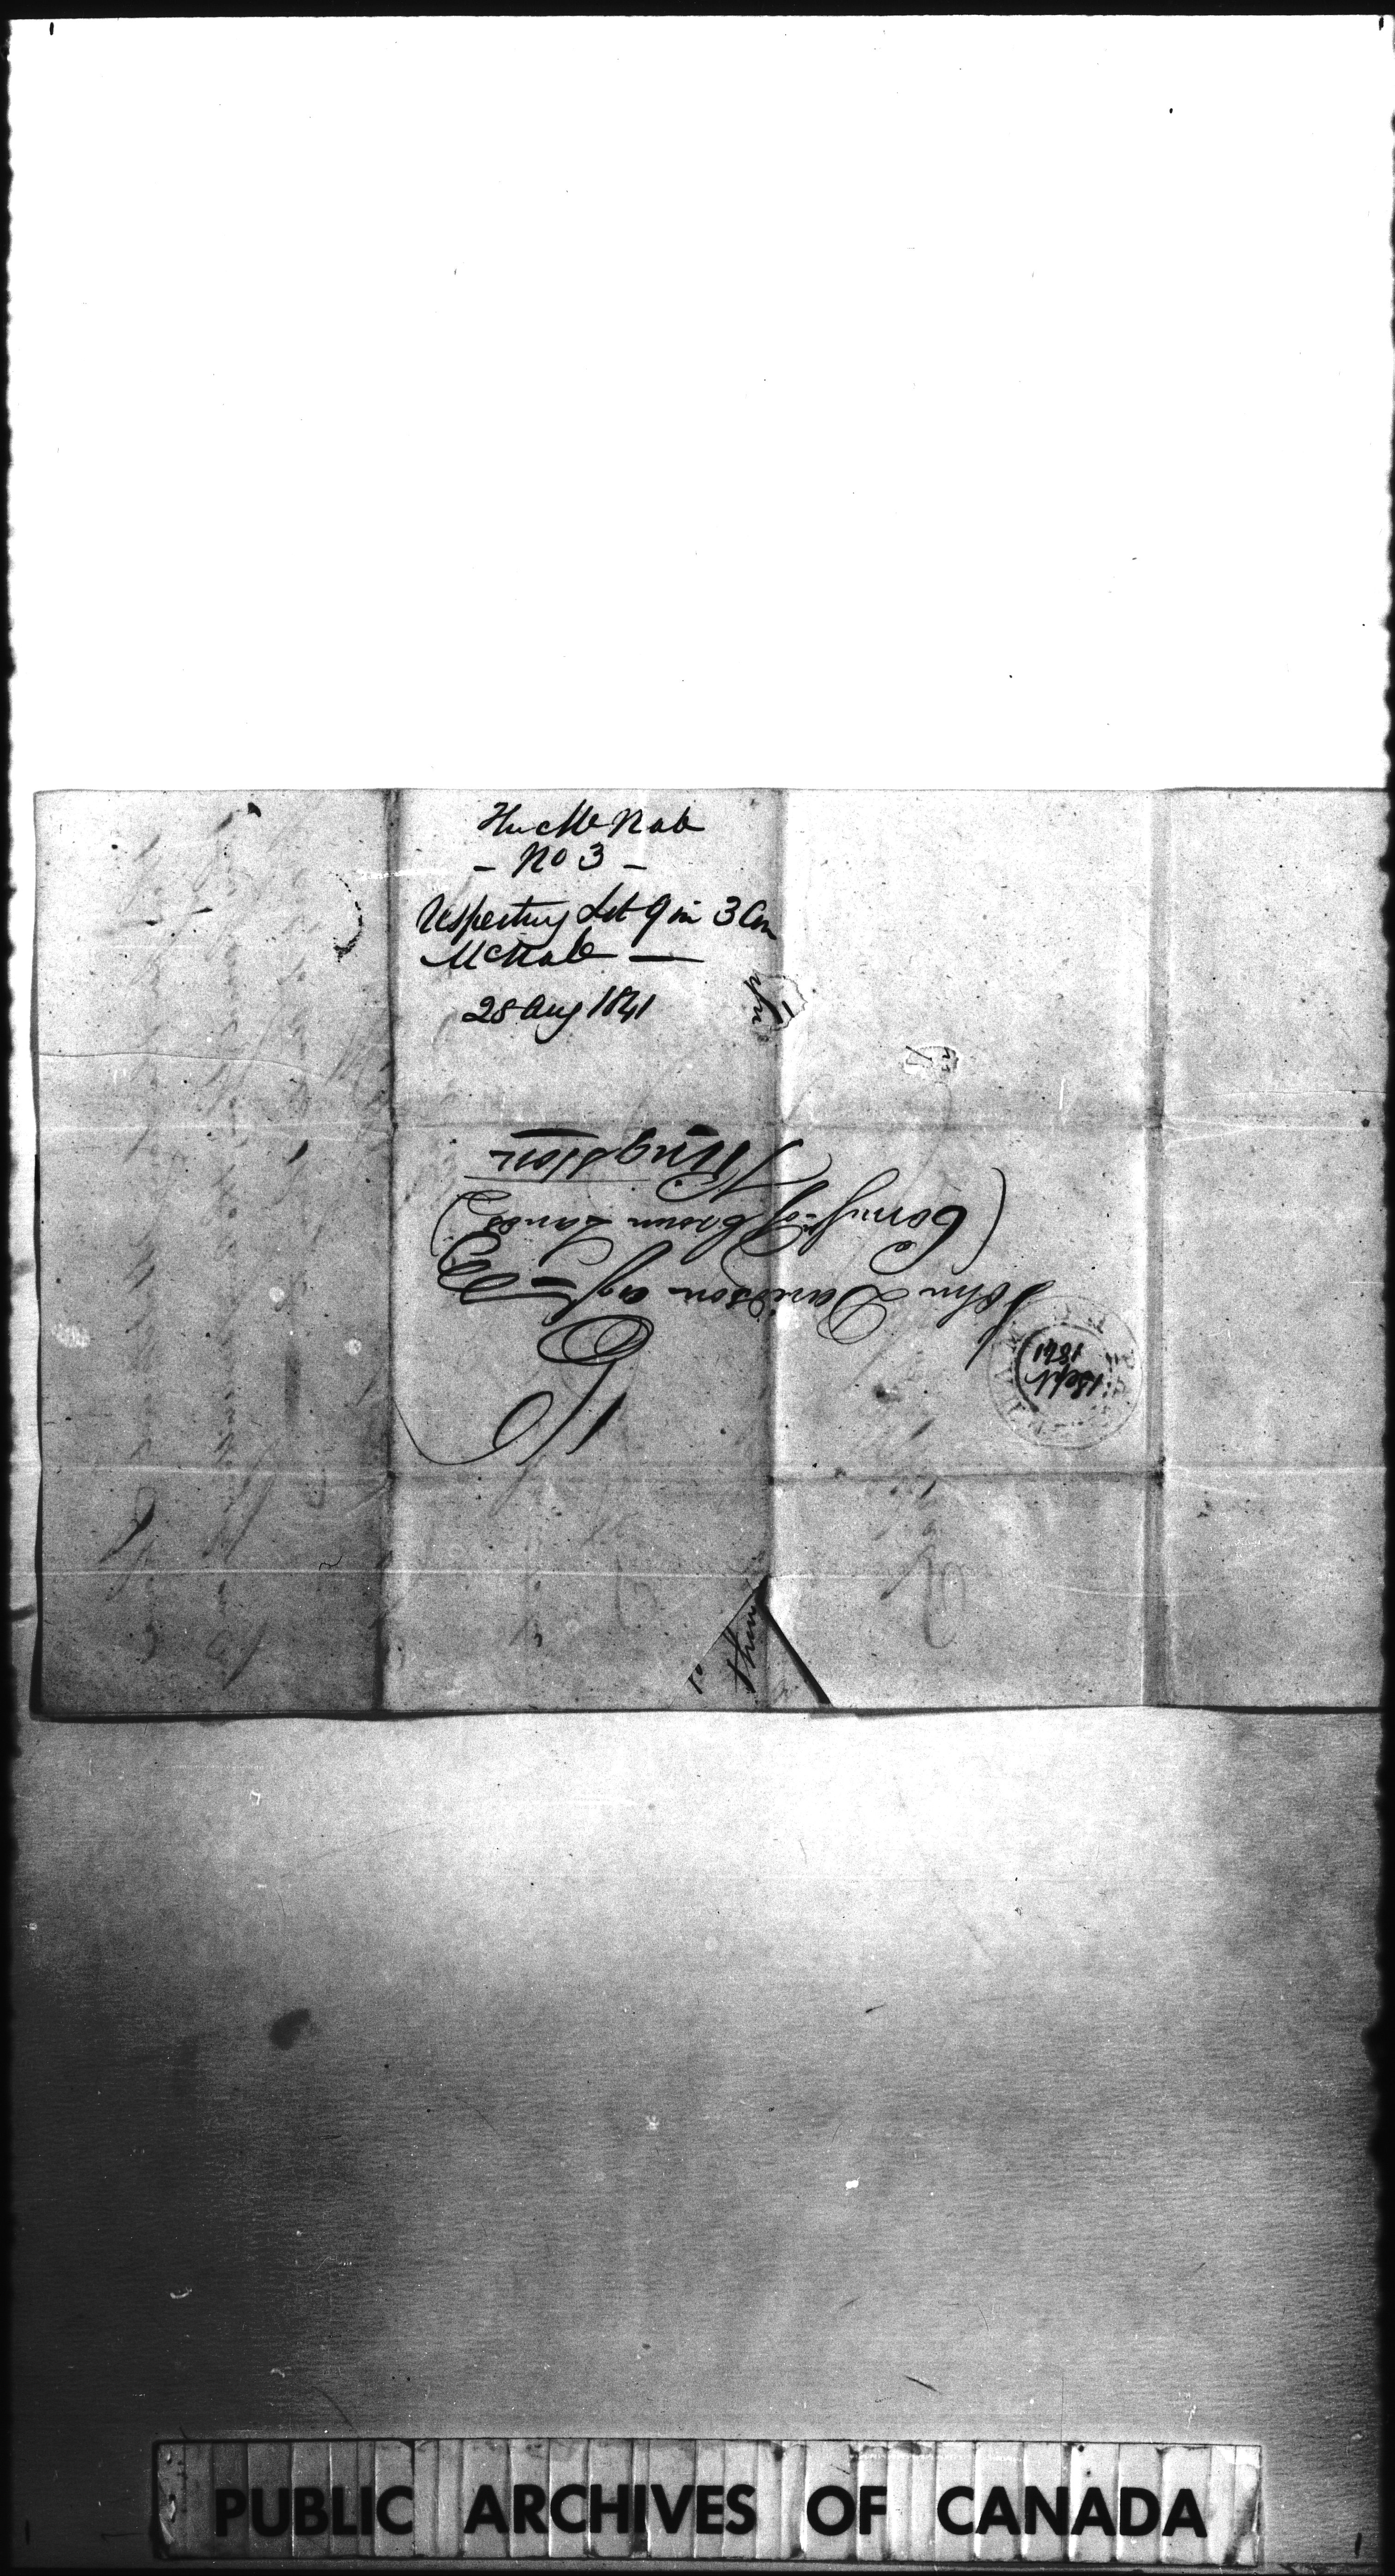 McNab
- No 3 -
Respecting Lot 9 in 3 Con
McNab —
28 Aug 1841
To
John Davidson Esq
(Comr. of Crown Lands)
Kingston
1 Sept
1841
to
them
PUBLIC ARCHIVES OF CANADA